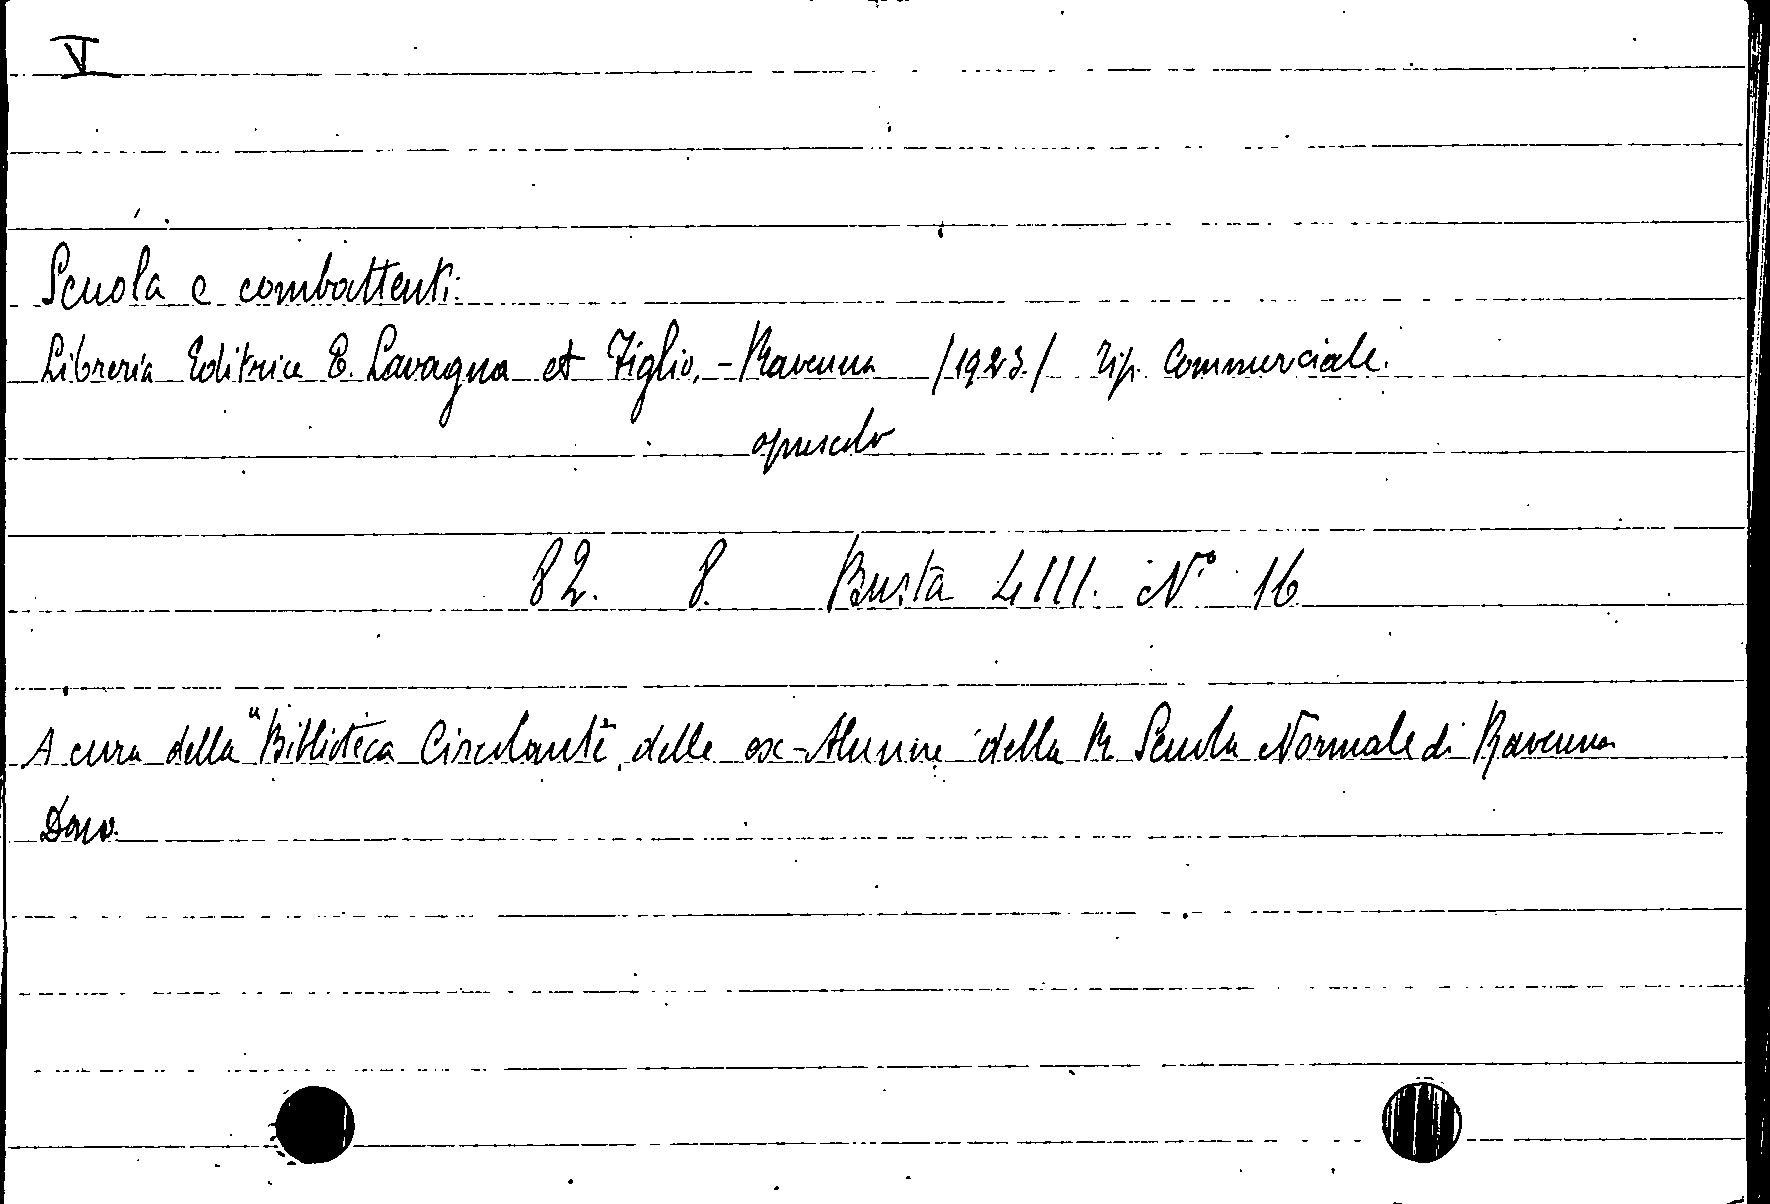 V
Scuola e combattenti.
Libreria Editrice E. Lavagna et Figlio, - Ravenna /1923./ Tip. Commerciale.
opuscolo
82. 8. Busta LIII. N.° 16
A cura della "Biblioteca Circolante" delle ex-Alunne della R. Scuola Normale di Ravenna
Dono.